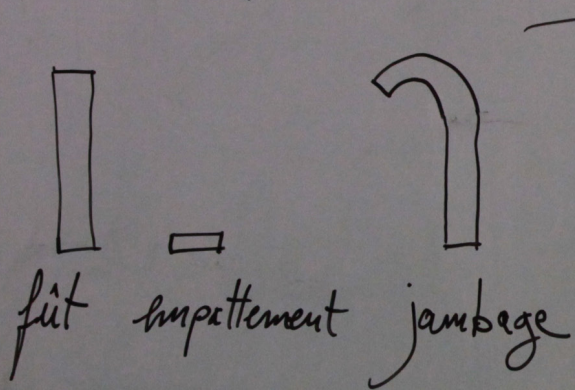 fût empattement jambage